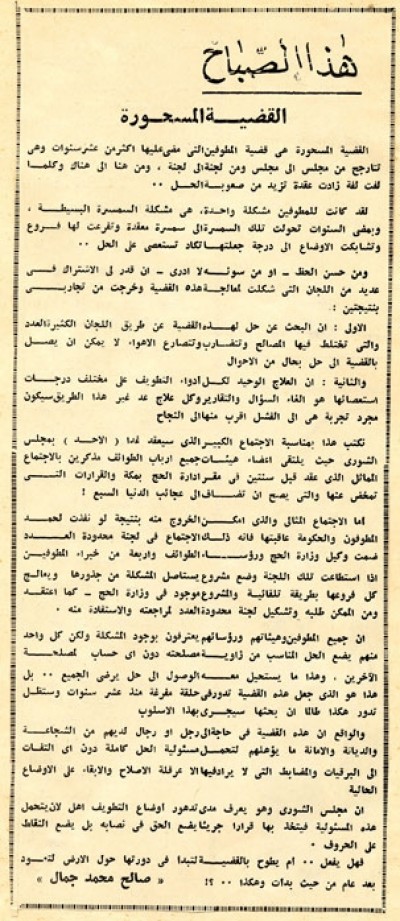 هذا الصباح
القضية المسحورة
القضية المسحورة هى قضية المطوفين التى مضى عليها اكثر من عشر سنوات وهى
تتارجح من مجلس الى مجلس ومن لجنة الى لجنة ، ومن هنا الى هناك وكلما
لفت لفة زادت عقدة تزيد من صعوبة الحل ..
لقد كانت للمطوفين مشكلة واحدة، هى مشكلة السمسرة البسيطة ،
وبمضى السنوات تحولت تلك السمسرة الى سمسرة معقدة وتفرعت لها فروع
وتشابكت الاوضاع الى درجة جعلتها تكاد تستعصى على الحل ..
ومن حسن الحظ - او من سوئه لا ادرى - ان قدر لى الاشتراك فى
عديد من اللجان التى شكلت لمعالجة هذه القضية وخرجت من تجاربى
بنتيجتين :
الاولى : ان البحث عن حل لهذه القضية عن طريق اللجان الكثيرة العدد
والتى تختلط فيها المصالح وتتضارب وتتصارع الاهواء لا يمكن ان يصل
بالقضية الى حل بحال من الاحوال
والثانية : ان العلاج الوحيد لكل ادواء التطويف على مختلف درجات
استعصائها هو الغاء السؤال والتقارير وكل علاج عد غير هذا الطريق سيكون
مجرد تجربة هى الى الفشل اقرب منها الى النجاح
نكتب هذا بمناسبة الاجتماع الكبير الذى سيعقد غدا ( الاحد ) بمجلس
الشورى حيث يلتقى اعضاء هيئات جميع ارباب الطوائف مذكرين بالاجتماع
المماثل الذى عقد قبل سنتين فى مقر ادارة الحج بمكة والقرارات التى
تمخض عنها والتى يصح ان تضاف الى عجائب الدنيا السبع !
اما الاجتماع المثالى والذى امكن الخروج منه بنتيجة لو نفذت لحمد
المطوفون والحكومة عاقبتها فانه ذلك الاجتماع فى لجنة محدودة العدد
ضمت وكيل وزارة الحج ورؤساء الطوائف واربعة من خبراء المطوفين
اذا استطاعت تلك اللجنة وضع مشروع يستاصل المشكلة من جذورها ويعالج
كل فروعها بطريقة تلقائية والمشروع موجود فى وزارة الحج - كما اعتقد
ومن الممكن طلبه وتشكيل لجنة محدودة العدد لمراجعته والاستفادة منه .
ان جميع المطوفين وهيئاتهم ورؤسائهم يعترفون بوجود المشكلة ولكن كل واحد
منهم يضع الحل المناسب من زاوية مصلحته دون اى حساب لمصلحة
الآخرين . وهذا ما يستحيل معه الوصول الى حل يرضى الجميع .. بل
هذا هو الذى جعل هذه القضية تدور فى حلقة مفرغة منذ عشر سنوات وستظل
تدور هكذا طالما ان بحثها سيجرى بهذا الاسلوب
والواقع ان هذه القضية فى حاجة الى رجل او رجال لديهم من الشجاعة
والديانة والامانة ما يؤهلهم لتحمل مسئولية الحل كاملة دون اى التفات
الى البرقيات والمضابط التى لا يراد فيها الا عرقلة الاصلاح والابقاء على الاوضاع
الحالية
ان مجلس الشورى وهو يعرف مدى تدهور اوضاع التطويف اهل لان يتحمل
هذه المسئولية فيتخذ بها قرارا جريئا يضع الحق فى نصابه بل يضع النقاط
على الحروف .
فهل يفعل .. ام يطوح بالقضية لتبدا فى دورتها حول الارض لتعود
بعد عام من حيث بدات وهكذا .. ؟! « صالح محمد جمال »